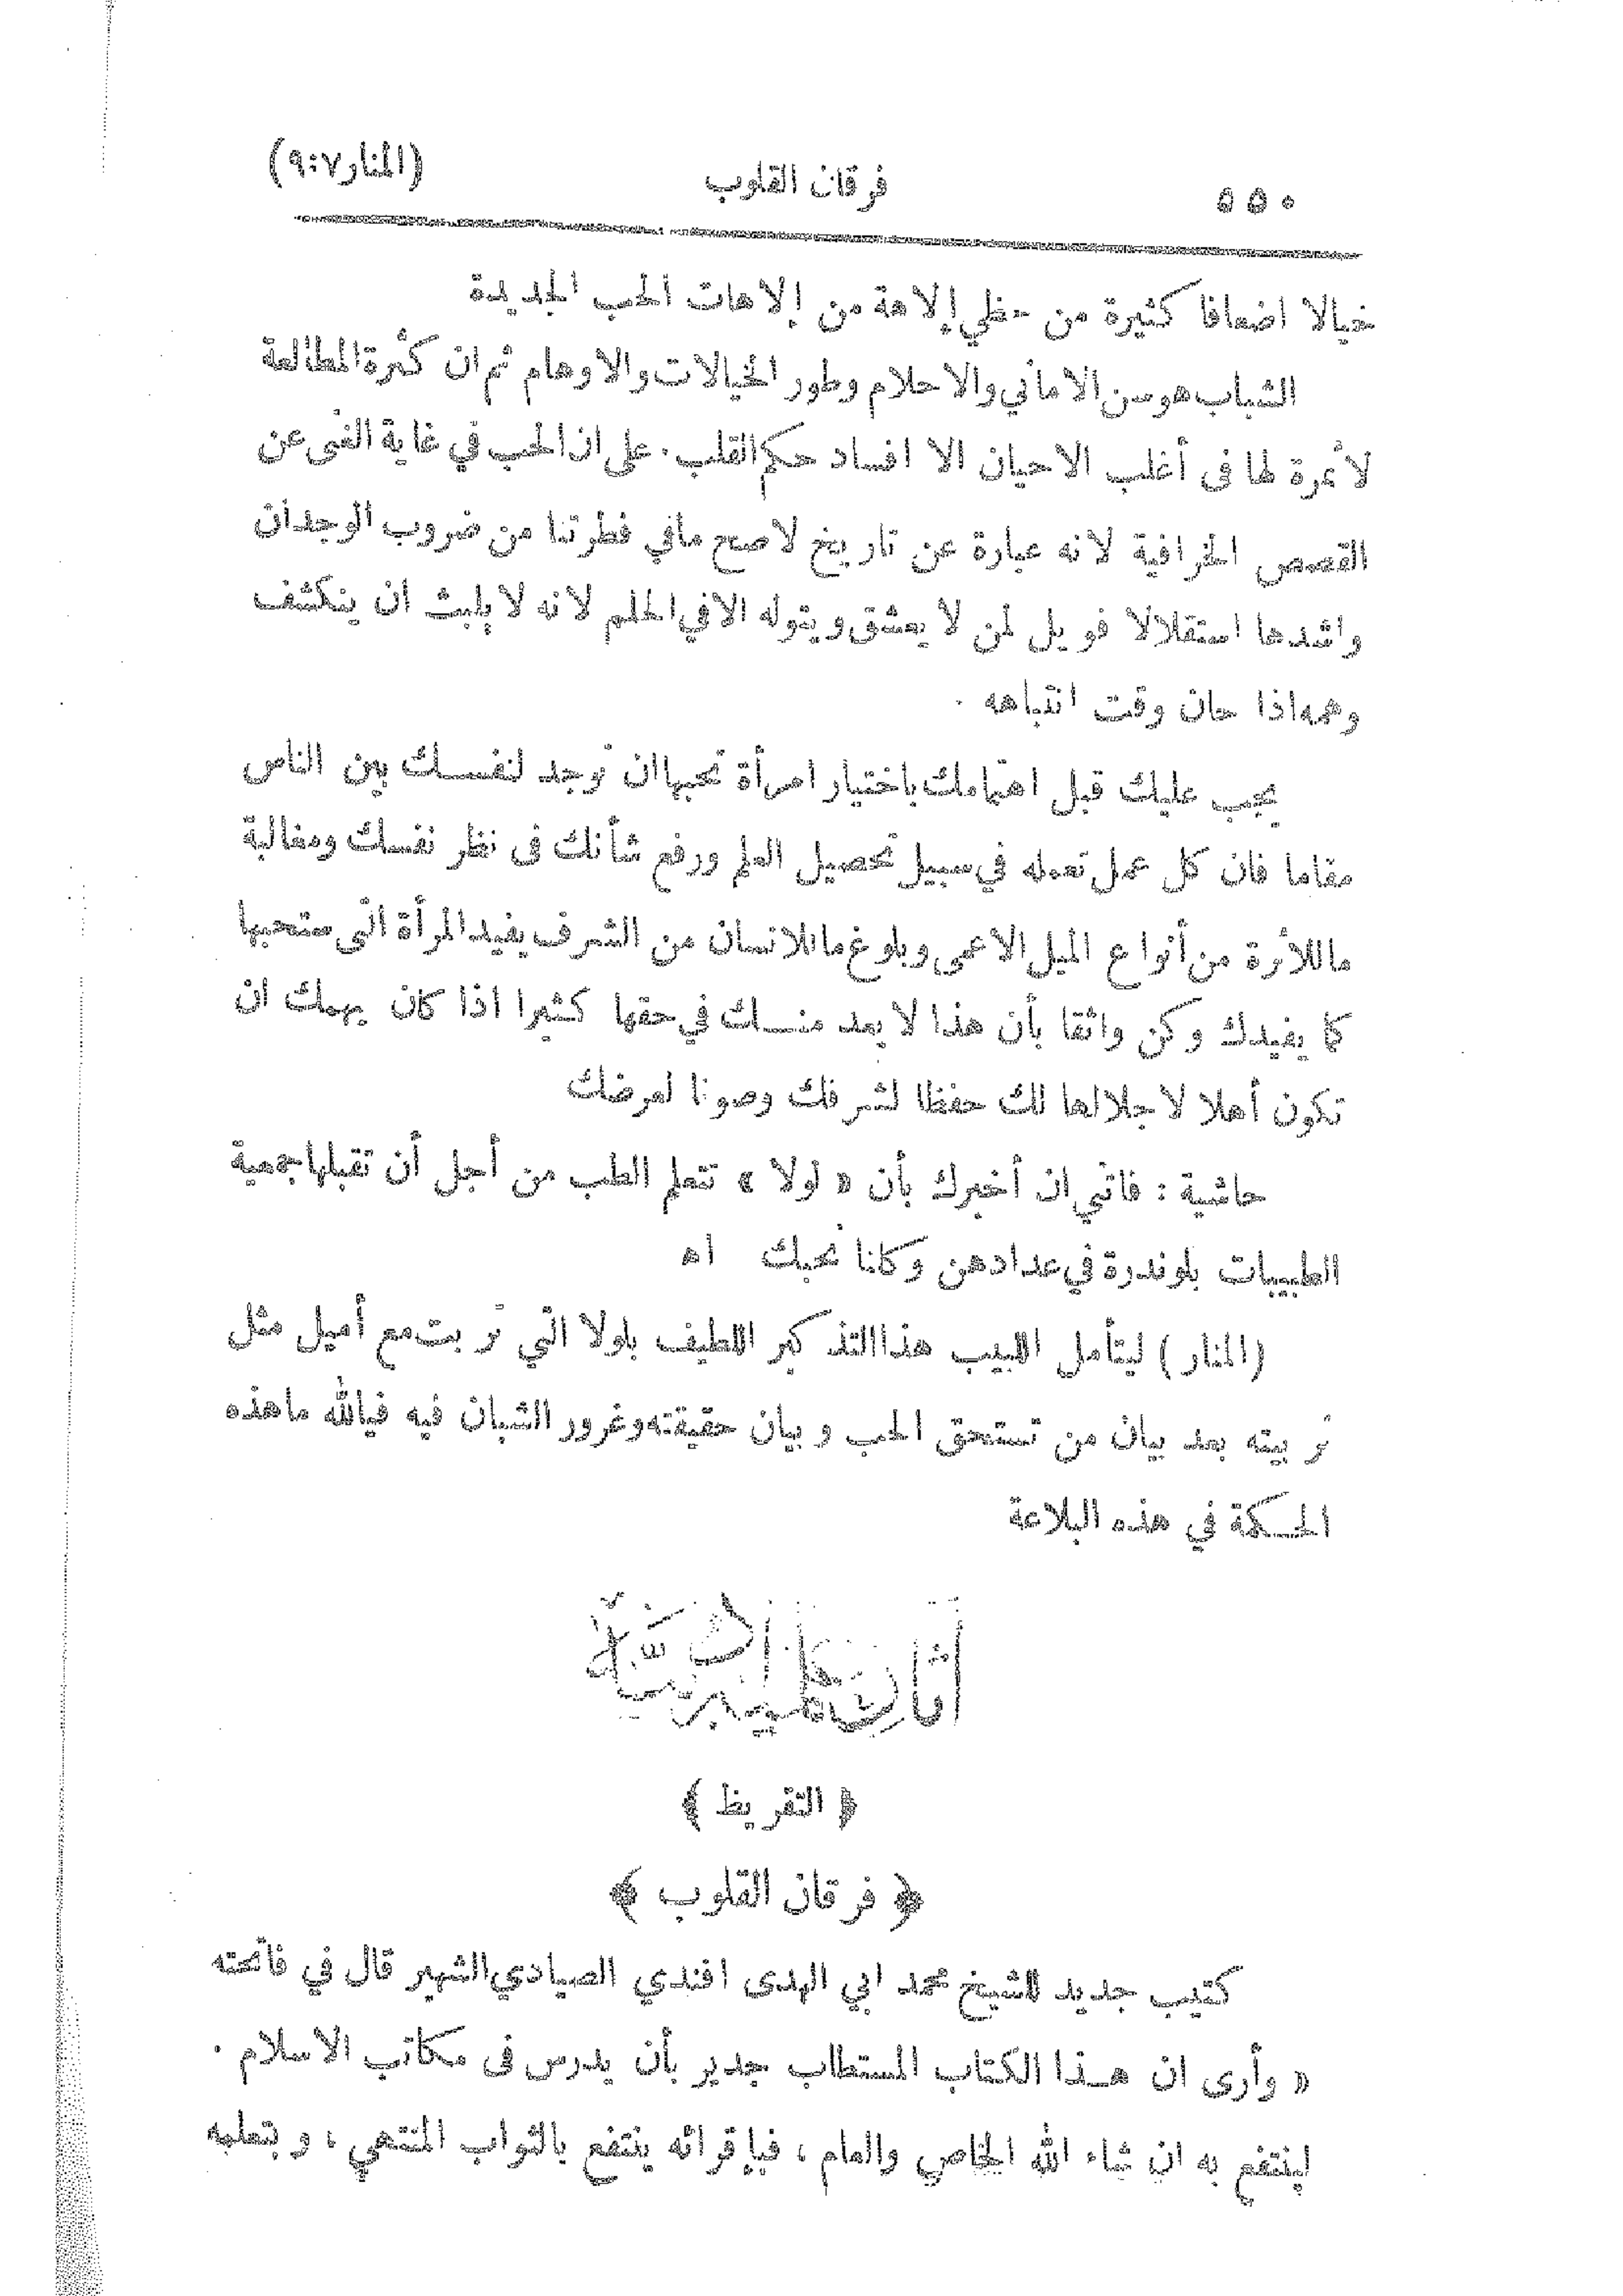 ٥٥٠ فرقان القلوب (المنار٧:٩)
خيالا اضعافا كثيرة من حظي إلاهة من إلاهات الحب الجديدة
الشباب هو سن الاماني والاحلام وطور الخيالات والاوهام ثم ان كثرة المطالعة
لا ثمرة لها فى أغلب الاحيان الا افساد حكم القلب. على ان الحب في غاية الغنى عن
القصص الخرافية لانه عبارة عن تاريخ لاصح مافي فطرتنا من ضروب الوجدان
واشدها استقلالا فويل لمن لا يعشق ويتوله الا في الحلم لانه لا يلبث ان ينكشف
وهمه اذا حان وقت انتباهه .
يجب عليك قبل اهتمامك باختيار امرأة تحبها ان توجد لنفسك بين الناس
مقاما فان كل عمل تعمله في سبيل تحصيل العلم ورفع شأنك فى نظر نفسك ومغالبة
ماللاثرة من أنواع الميل الاعمى وبلوغ ماللانسان من الشرف يفيد المرأة التى ستحبها
كما يفيدك وكن واثقا بأن هذا لا يعد منك في حقها كثيرا اذا كان يهمك ان
تكون أهلا لاجلالها لك حفظا لشرفك وصونا لعرضك
حاشية : فاتني ان أخبرك بأن « لولا » تتعلم الطب من أجل أن تقبلها جمعية
الطبيبات بلوندرة في عدادهن وكلنا نحبك اهـ
(المنار) ليتأمل اللبيب هذا التذكير اللطيف بلولا التي تربت مع أميل مثل
تربيته بعد بيان من تستحق الحب وبيان حقيقته وغرور الشبان فيه فيالله ماهذه
الحكمة في هذه البلاغة
﴿ التقريظ ﴾
﴿ فرقان القلوب ﴾
كتيب جديد للشيخ محمد ابي الهدى افندي الصيادي الشهير قال في فاتحته
« وأرى ان هذا الكتاب المستطاب جدير بأن يدرس فى مكاتب الاسلام .
لينتفع به ان شاء الله الخاص والعام ، فبإقرائه ينتفع بالثواب المنتهي ، وبتعلمه